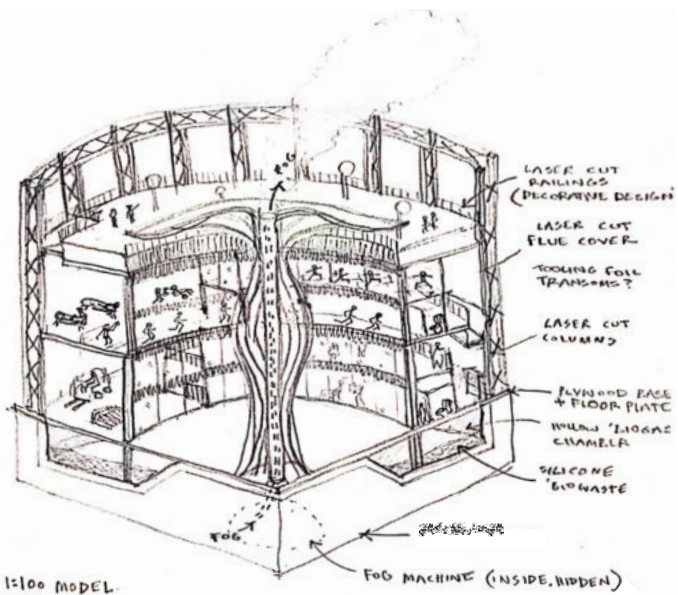 FOG
LASER CUT
RAILINGS
(DECORATIVE DESIGN)
LASER CUT
FLUE COVER
TOOLING FOIL
TRANSOMS?
LASER CUT
COLUMNS
PLYWOOD BASE
+ FLOOR PLATE
HOLLOW 'BIOGAS
CHAMBER
SILICONE
'BIOWASTE
FOG
FOG MACHINE (INSIDE, HIDDEN)
1:100 MODEL.